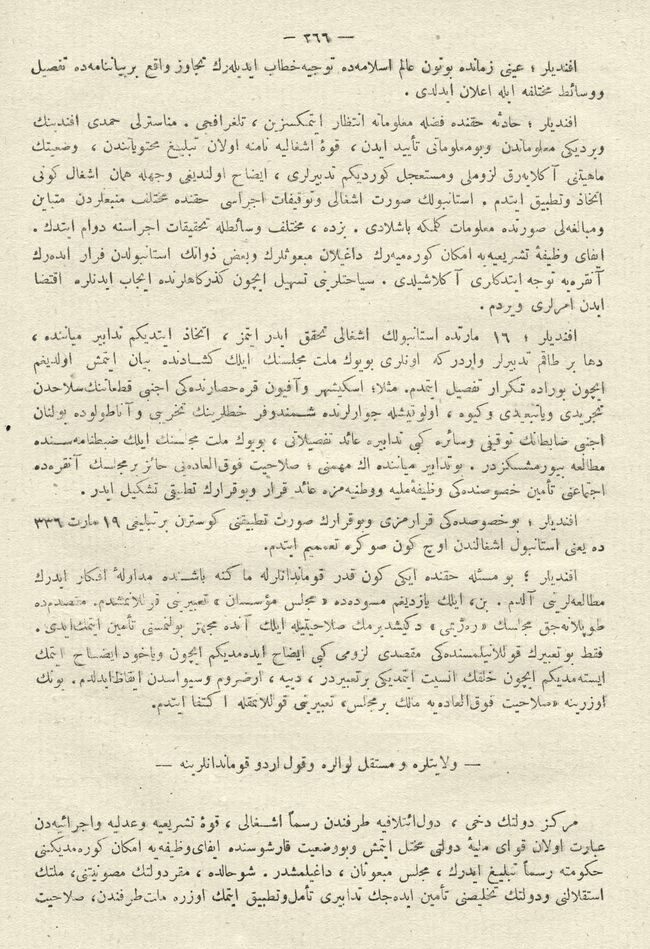 — ٣٦٦ —
افندیلر ؛ عینی زمانده بوتون عالم اسلامه‌ده توجیه خطاب ایدیله‌رك تجاوز واقع بر بیاننامه‌ده تفصیل
ووسائط مختلفه ایله اعلان ایدلدی .
افندیلر ؛ حادثه حقنده فضله معلوماته انتظار ایتمكسزین ، تلغرافجی . مناسترلی حمدی افندینك
ویردیكی معلوماتدن وبومعلوماتی تأیید ایدن ، قوهٔ اشغالیه نامنه اولان تبلیغ محتویاتندن ، وضعیتك
ماهیتنی آكلایه‌رق لزوملی ومستعجل كوردیكم تدبیرلری ، ایضاح اولندیغی وجهله همان اشغال كونی
اتخاذ وتطبیق ایتدم . استانبولك صورت اشغالی وتوقیفات اجراسی حقنده مختلف منبعلردن متباین
ومبالغه‌لی صورتده معلومات كلمكه باشلادی . بزده ، مختلف وسائطله تحقیقات اجراسنه دوام ایتدك .
ایفای وظیفهٔ تشریعیه‌یه امكان كوره‌میه‌رك داغیلان مبعوثلرك وبعض ذواتك استانبولدن فرار ایده‌رك
آنقره‌یه توجه ایتدكلری آكلاشیلدی . سیاحتلرینی تسهیل ایچون كذركاهلرنده ایجاب ایدنلره اقتضا
ایدن امرلری ویردم .
افندیلر ؛ ١٦ مارتده استانبولك اشغالی تحقق ایدر ایتمز ، اتخاذ ایتدیكم تدابیر میاننده ،
دها بر طاقم تدبیرلر واردركه اونلری بویوك ملت مجلسنك ایلك كشادنده بیان ایتمش اولدیغم
ایچون بوراده تكرار تفصیل ایتمدم . مثلا؛ اسكیشهر وآفیون قره‌حصارنده‌كی اجنبی قطعاتنك سلاحدن
تجریدی ویاتبعیدی وكیوه ، اولوقیشله جوارلرنده شمندوفر خطلرینك تخریبی وآناطولوده بولنان
اجنبی ضابطانك توقیفی وسائره كبی تدابیره عائد تفصیلاتی ، بویوك ملت مجلسنك ایلك ضبطنامه‌سنده
مطالعه بیورمشسكزدر . بوتدابیر میاننده اك مهمنی ؛ صلاحیت فوق‌العاده‌یی حائز بر مجلسك آنقره‌ده
اجتماعنی تأمین خصوصنده‌كی وظیفهٔ ملیه ووطنیه‌مزه عائد قرار وبوقرارك تطبیقی تشكیل ایدر .
افندیلر ؛ بو خصوصده‌كی قرارمزی وبوقرارك صورت تطبیقنی كوسترن بر تبلیغی ١٩ مارت ٣٣٦
ده یعنی استانبول اشغالندن اوچ كون صوكره تعمیم ایتدم.
افندیلر ؛ بو مسئله حقنده ایكی كون قدر قوماندانلرله ماكنه باشنده مداولهٔ افكار ایدرك
مطالعه‌لرینی آلدم . بن، ایلك یازدیغم مسوده‌ده « مجلس مؤسسان » تعبیرینی قوللانمشدم. مقصدم‌ده
طوپلانه‌جق مجلسك «ره‌ژیمی » دكیشدیرمك صلاحیتیله ایلك آنده مجهز بولنمسنی تأمین ایتمك‌ایدی .
فقط بو تعبیرك قوللانیلمسنده‌كی مقصدی لزومی كبی ایضاح ایده‌مدیكم ایچون ویاخود ایضاح ایتمك
ایسته‌مدیكم ایچون خلقك انسیت ایتمدیكی بر تعبیردر ، دییه ، ارضروم وسیواسدن ایقاظ ایدلدم . بونك
اوزرینه «صلاحیت فوق‌العاده‌یه مالك بر مجلس، تعبیرینی قوللانمقله اكتفا ایتدم.
— ولایتلره و مستقل لوالره وقول اردو قوماندانلرینه —
مركز دولتك دخی ، دول‌ائتلافیه طرفندن رسماً اشغالی ، قوهٔ تشریعیه وعدلیه واجرائیه‌دن
عبارت اولان قوای ملیهٔ دولتی مختل ایتمش وبووضعیت قارشوسنده ایفای‌وظیفه‌یه امكان كوره‌مدیكنی
حكومته رسماً تبلیغ ایدرك ، مجلس مبعوثان ، داغیلمشدر . شوحالده ، مقر دولتك مصونیتنی، ملتك
استقلالنی ودولتك تخلیصنی تأمین ایده‌جك تدابیری تأمل‌وتطبیق ایتمك اوزره ملت‌طرفندن، صلاحیت